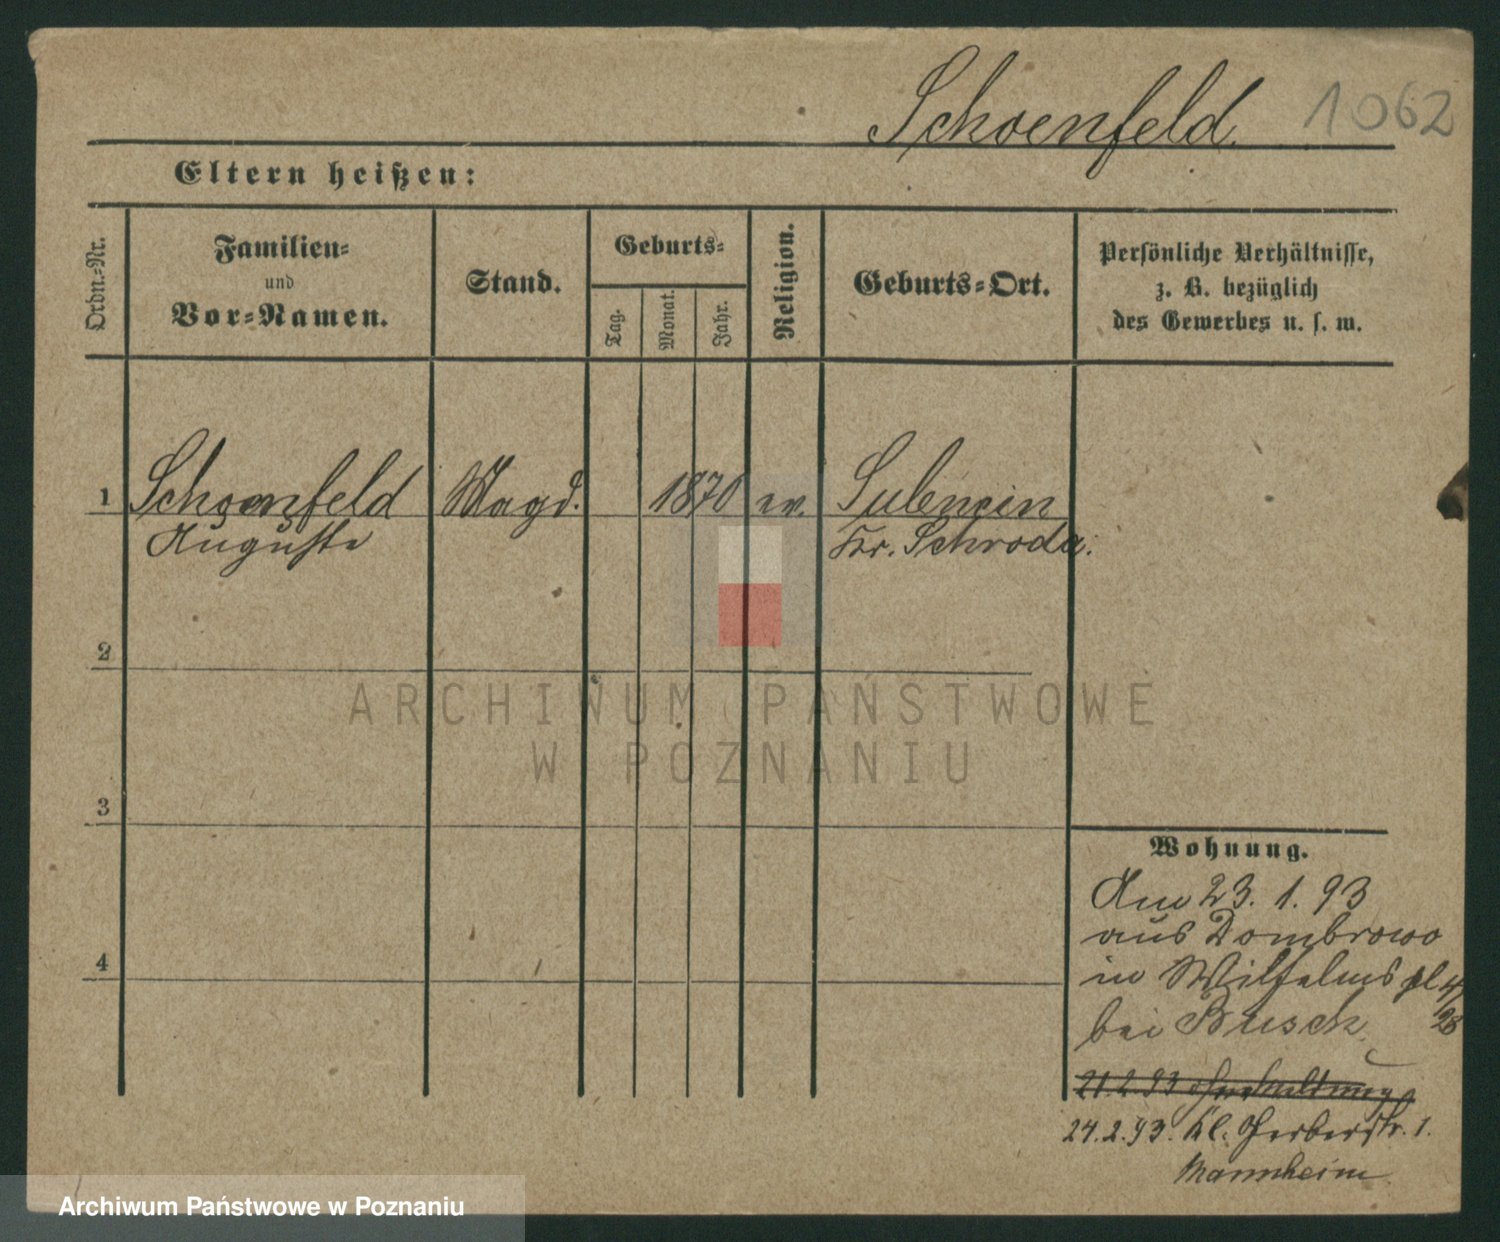 Schoenfeld.
1062
Eltern heißen:
Ordn.=Nr.
Familien=
und
Vor=Namen.
Stand.
Geburts=
Tag.
Monat.
Jahr.
Religion.
Geburts=Ort.
Persönliche Verhältnisse,
z. B. bezüglich
des Gewerbes u. s. w.
1 Schoenfeld Magd. 1870 ev. Sulencin
Auguste Kr. Schroda.
2
ARCHIWUM PAŃSTWOWE
W POZNANIU
3
Wohnung.
4
Am 23. 1. 93
aus Dombrowo
in Wilhelmspl
bei Busch
21.2.93
24.2.93. Kl. Gerberstr. 1.
Mannheim
Archiwum Państwowe w Poznaniu